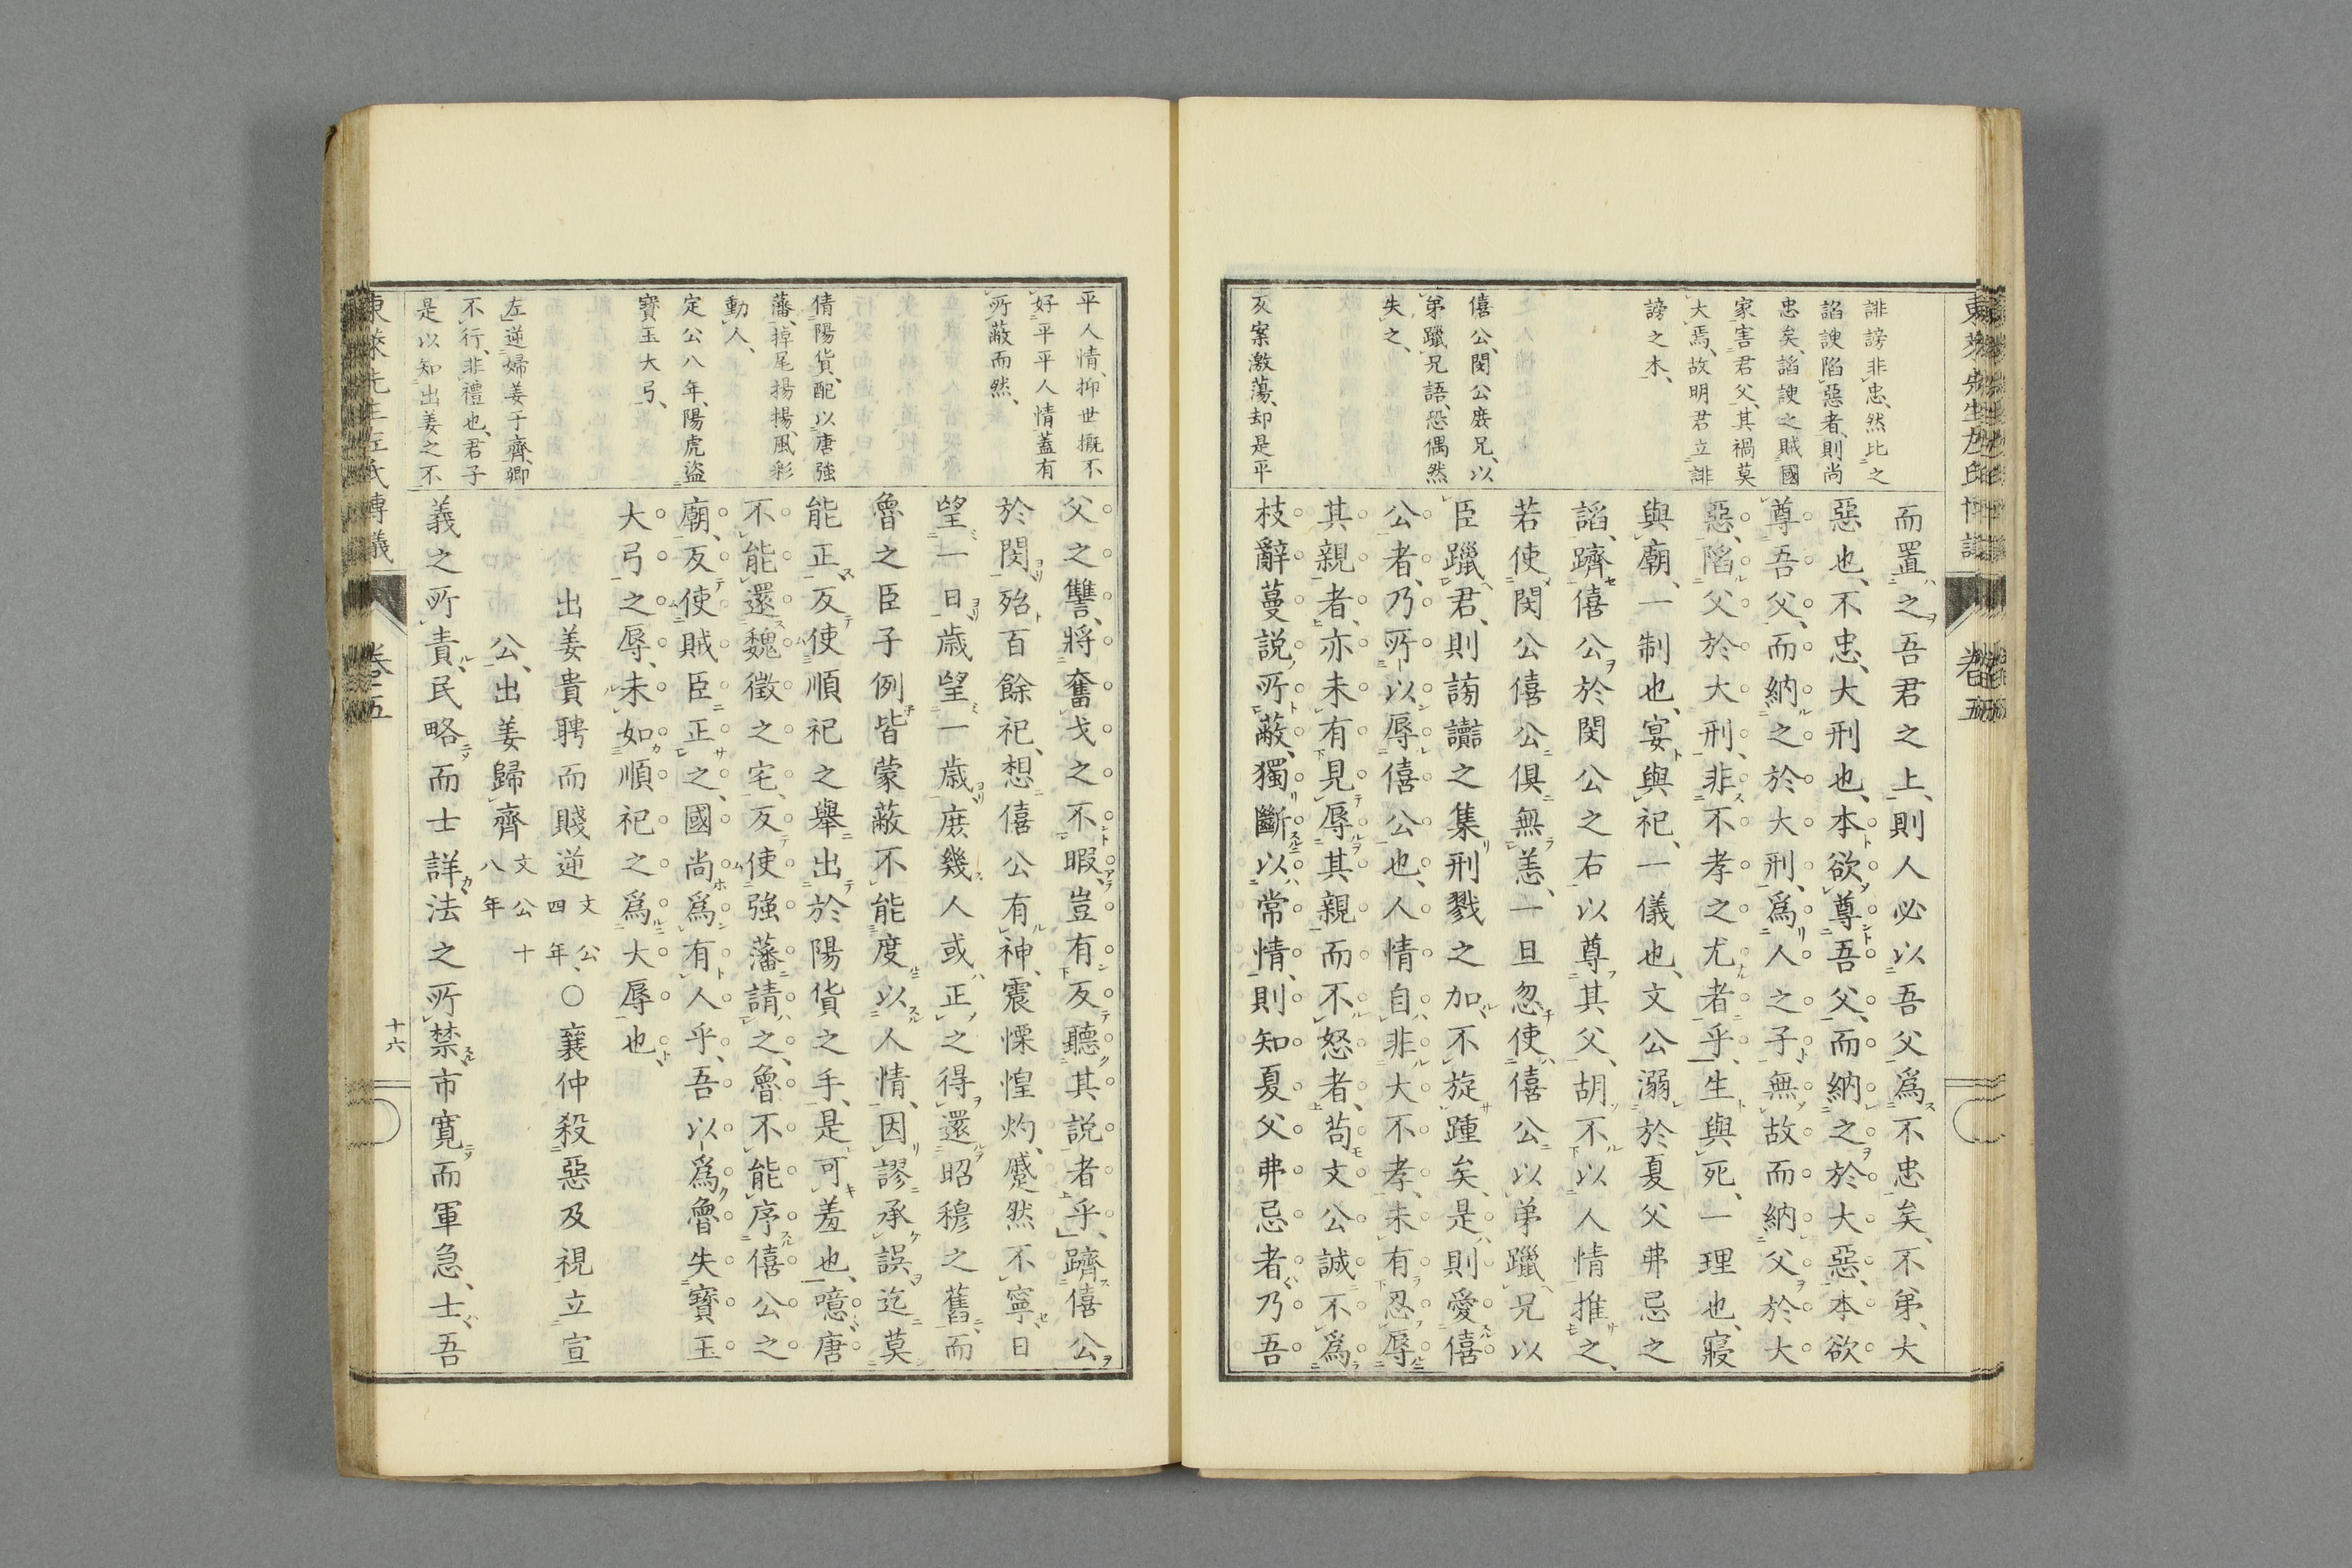 誹謗非忠、然比之
諂諛陷惡者、則尚
忠矣、諂諛之賊國
家害君父、其禍莫
大焉、故明君立誹
謗之木、
僖公、閔公庶兄、以
弟躐兄語、恐偶然
失之、
反案激蕩、却是平
而置之吾君之上、則人必以吾父爲不忠矣、不弟、大
惡也、不忠、大刑也、本欲尊吾父、而納之於大惡、本欲
尊吾父、而納之於大刑、爲人之子、無故而納父於大
惡、陷父於大刑、非不孝之尤者乎、生與死、一理也、寢
與廟、一制也、宴與祀、一儀也、文公溺於夏父弗忌之
諂、躋僖公於閔公之右、以尊其父、胡不以人情推之、
若使閔公僖公俱無恙、一旦忽使僖公以弟躐兄以
臣躐君、則謗讟之集刑戮之加、不旋踵矣、是則愛僖
公者、乃所以辱僖公也、人情自非大不孝、未有忍辱
其親者、亦未有見辱其親而不怒者、苟文公誠不爲
枝辭蔓説所蔽、獨斷以常情、則知夏父弗忌者乃吾
平人情、抑世槪不
好平、平人情蓋有
所蔽而然、
倩陽貨、配以唐強
藩、掉尾揚揚、風彩
動人、
定公八年、陽虎盜
寶玉大弓、
左、逆婦姜于齊、卿
不行、非禮也、君子
是以知出姜之不
父之讐、將奮戈之不暇、豈有反聽其説者乎、躋僖公
於閔、殆百餘祀、想僖公有神、震慄惶灼、蹙然不寧、日
望一日、歳望一歳、庶幾人或正之、得還昭穆之舊、而
魯之臣子例皆蒙蔽、不能度以人情、因謬承誤、迄莫
能正、反使順祀之舉出於陽貨之手、是可羞也、噫、唐
不能還魏徵之宅、反使強藩請之、魯不能序僖公之
廟、反使賊臣正之、國尚爲有人乎、吾以爲魯失寶玉
大弓之辱、未如順祀之爲大辱也、
出姜貴聘而賤逆文公四年、○襄仲殺惡及視立宣
公、出姜歸齊文公十八年
義之所責、民略而士詳、法之所禁、市寛而軍急、士、吾
東萊先生左氏博議
卷五
十六
東萊先生左氏博議
卷五